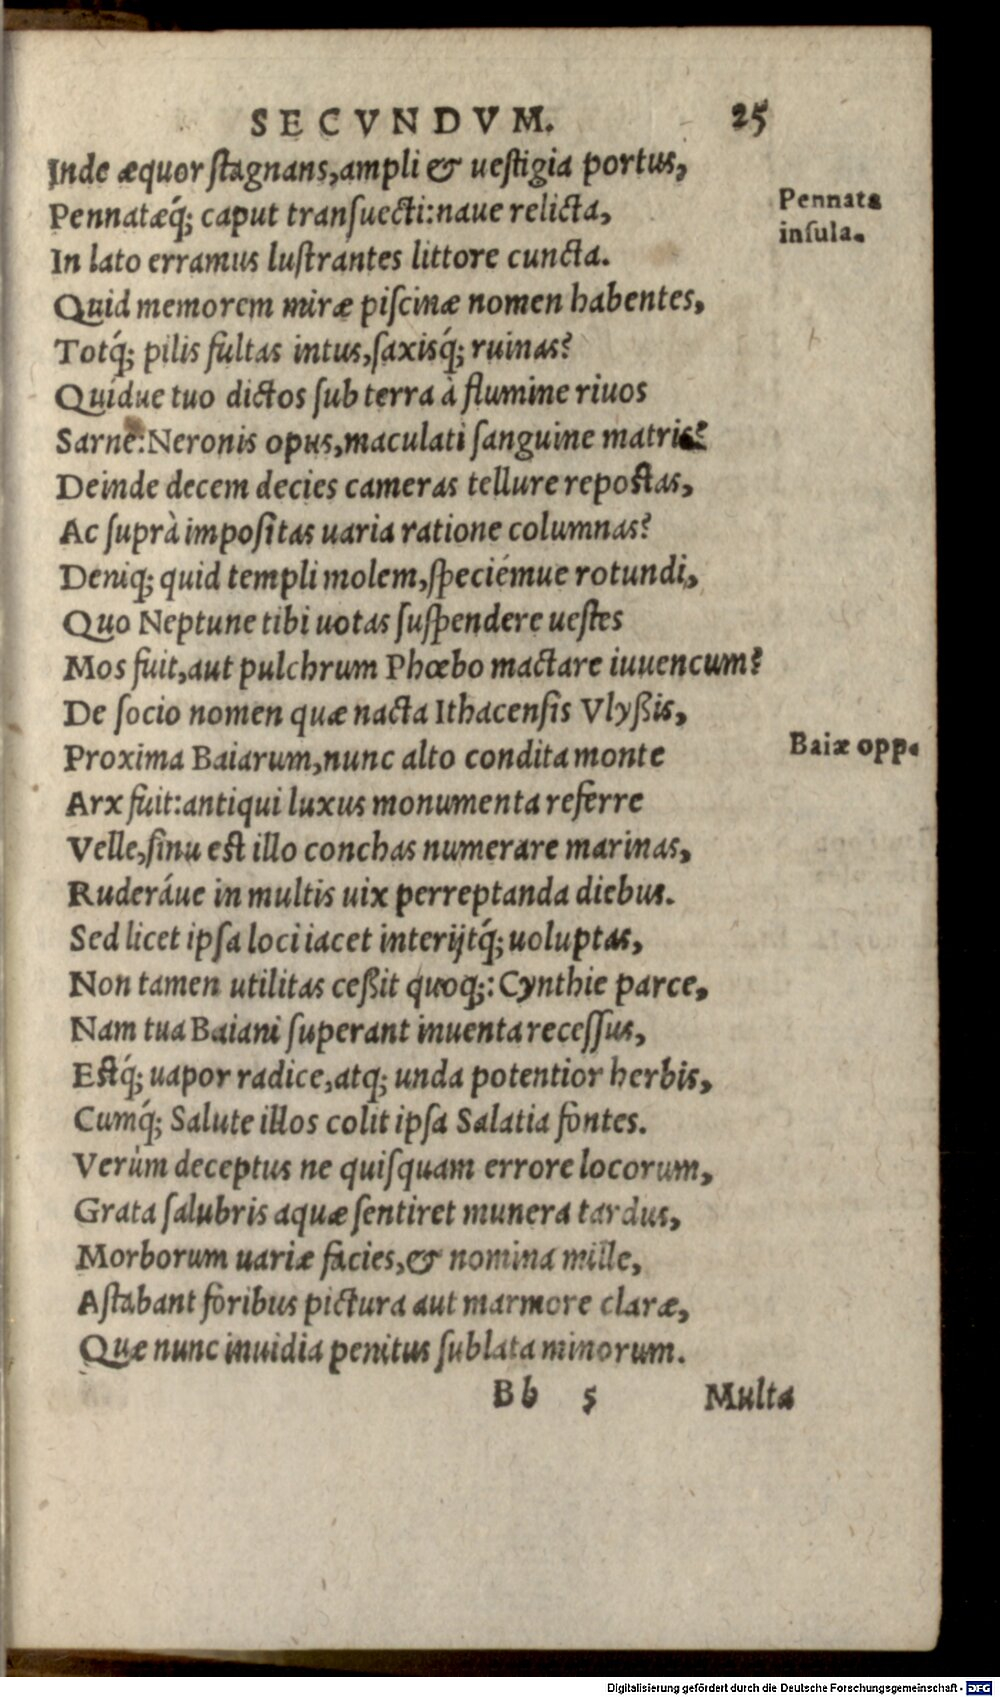 SECVNDVM. 25
Inde æquor stagnans, ampli & uestigia portus,
Pennatæq́; caput transuecti: naue relicta,
Pennata
insula.
In lato erramus lustrantes littore cuncta.
Quid memorem miræ piscinæ nomen habentes,
Totq́; pilis fultas intus, saxisq́; ruinas?
Quidue tuo dictos sub terra à flumine riuos
Sarne: Neronis opus, maculati sanguine matris?
Deinde decem decies cameras tellure repostas,
Ac suprà impositas uaria ratione columnas?
Deniq; quid templi molem, speciémue rotundi,
Quo Neptune tibi uotas suspendere uestes
Mos fuit, aut pulchrum Phœbo mactare iuuencum?
De socio nomen quæ nacta Ithacensis Vlyßis,
Proxima Baiarum, nunc alto condita monte
Baiæ opp.
Arx fuit: antiqui luxus monumenta referre
Velle, sinu est illo conchas numerare marinas,
Ruderáue in multis uix perreptanda diebus.
Sed licet ipsa loci iacet interijtq́; uoluptas,
Non tamen utilitas ceßit quoq;: Cynthie parce,
Nam tua Baiani superant inuenta recessus,
Estq́; uapor radice, atq; unda potentior herbis,
Cumq́; Salute illos colit ipsa Salatia fontes.
Verùm deceptus ne quisquam errore locorum,
Grata salubris aquæ sentiret munera tardus,
Morborum uariæ facies, & nomina mille,
Astabant foribus pictura aut marmore claræ,
Quæ nunc inuidia penitus sublata minorum.
Bb 5 Multa
Digitalisierung gefördert durch die Deutsche Forschungsgemeinschaft - DFG